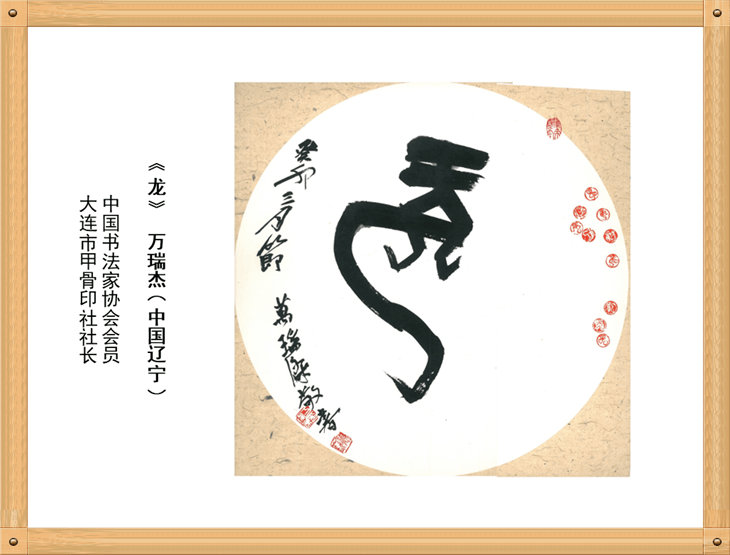 龙
癸卯三月節
萬瑞傑敬書
《龙》 万瑞杰（中国辽宁）
中国书法家协会会员
大连市甲骨印社社长